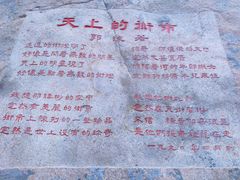 天上的街市
郭沫若
远远的街灯明了
好像闪着无数的明星
天上的明星现了
好像点着无数的街灯
我想那缥缈的空中
定然有美丽的街市
街市上陈列的一些物品
定然是世上没有的珍奇
你看 那浅浅的天河
定然是不甚宽广
那隔着河的牛郎织女
定能够骑着牛儿来往
我想他们此刻
定然在天街闲游
不信 请看那朵流星
是他们提着灯笼在走
一九九 年四月